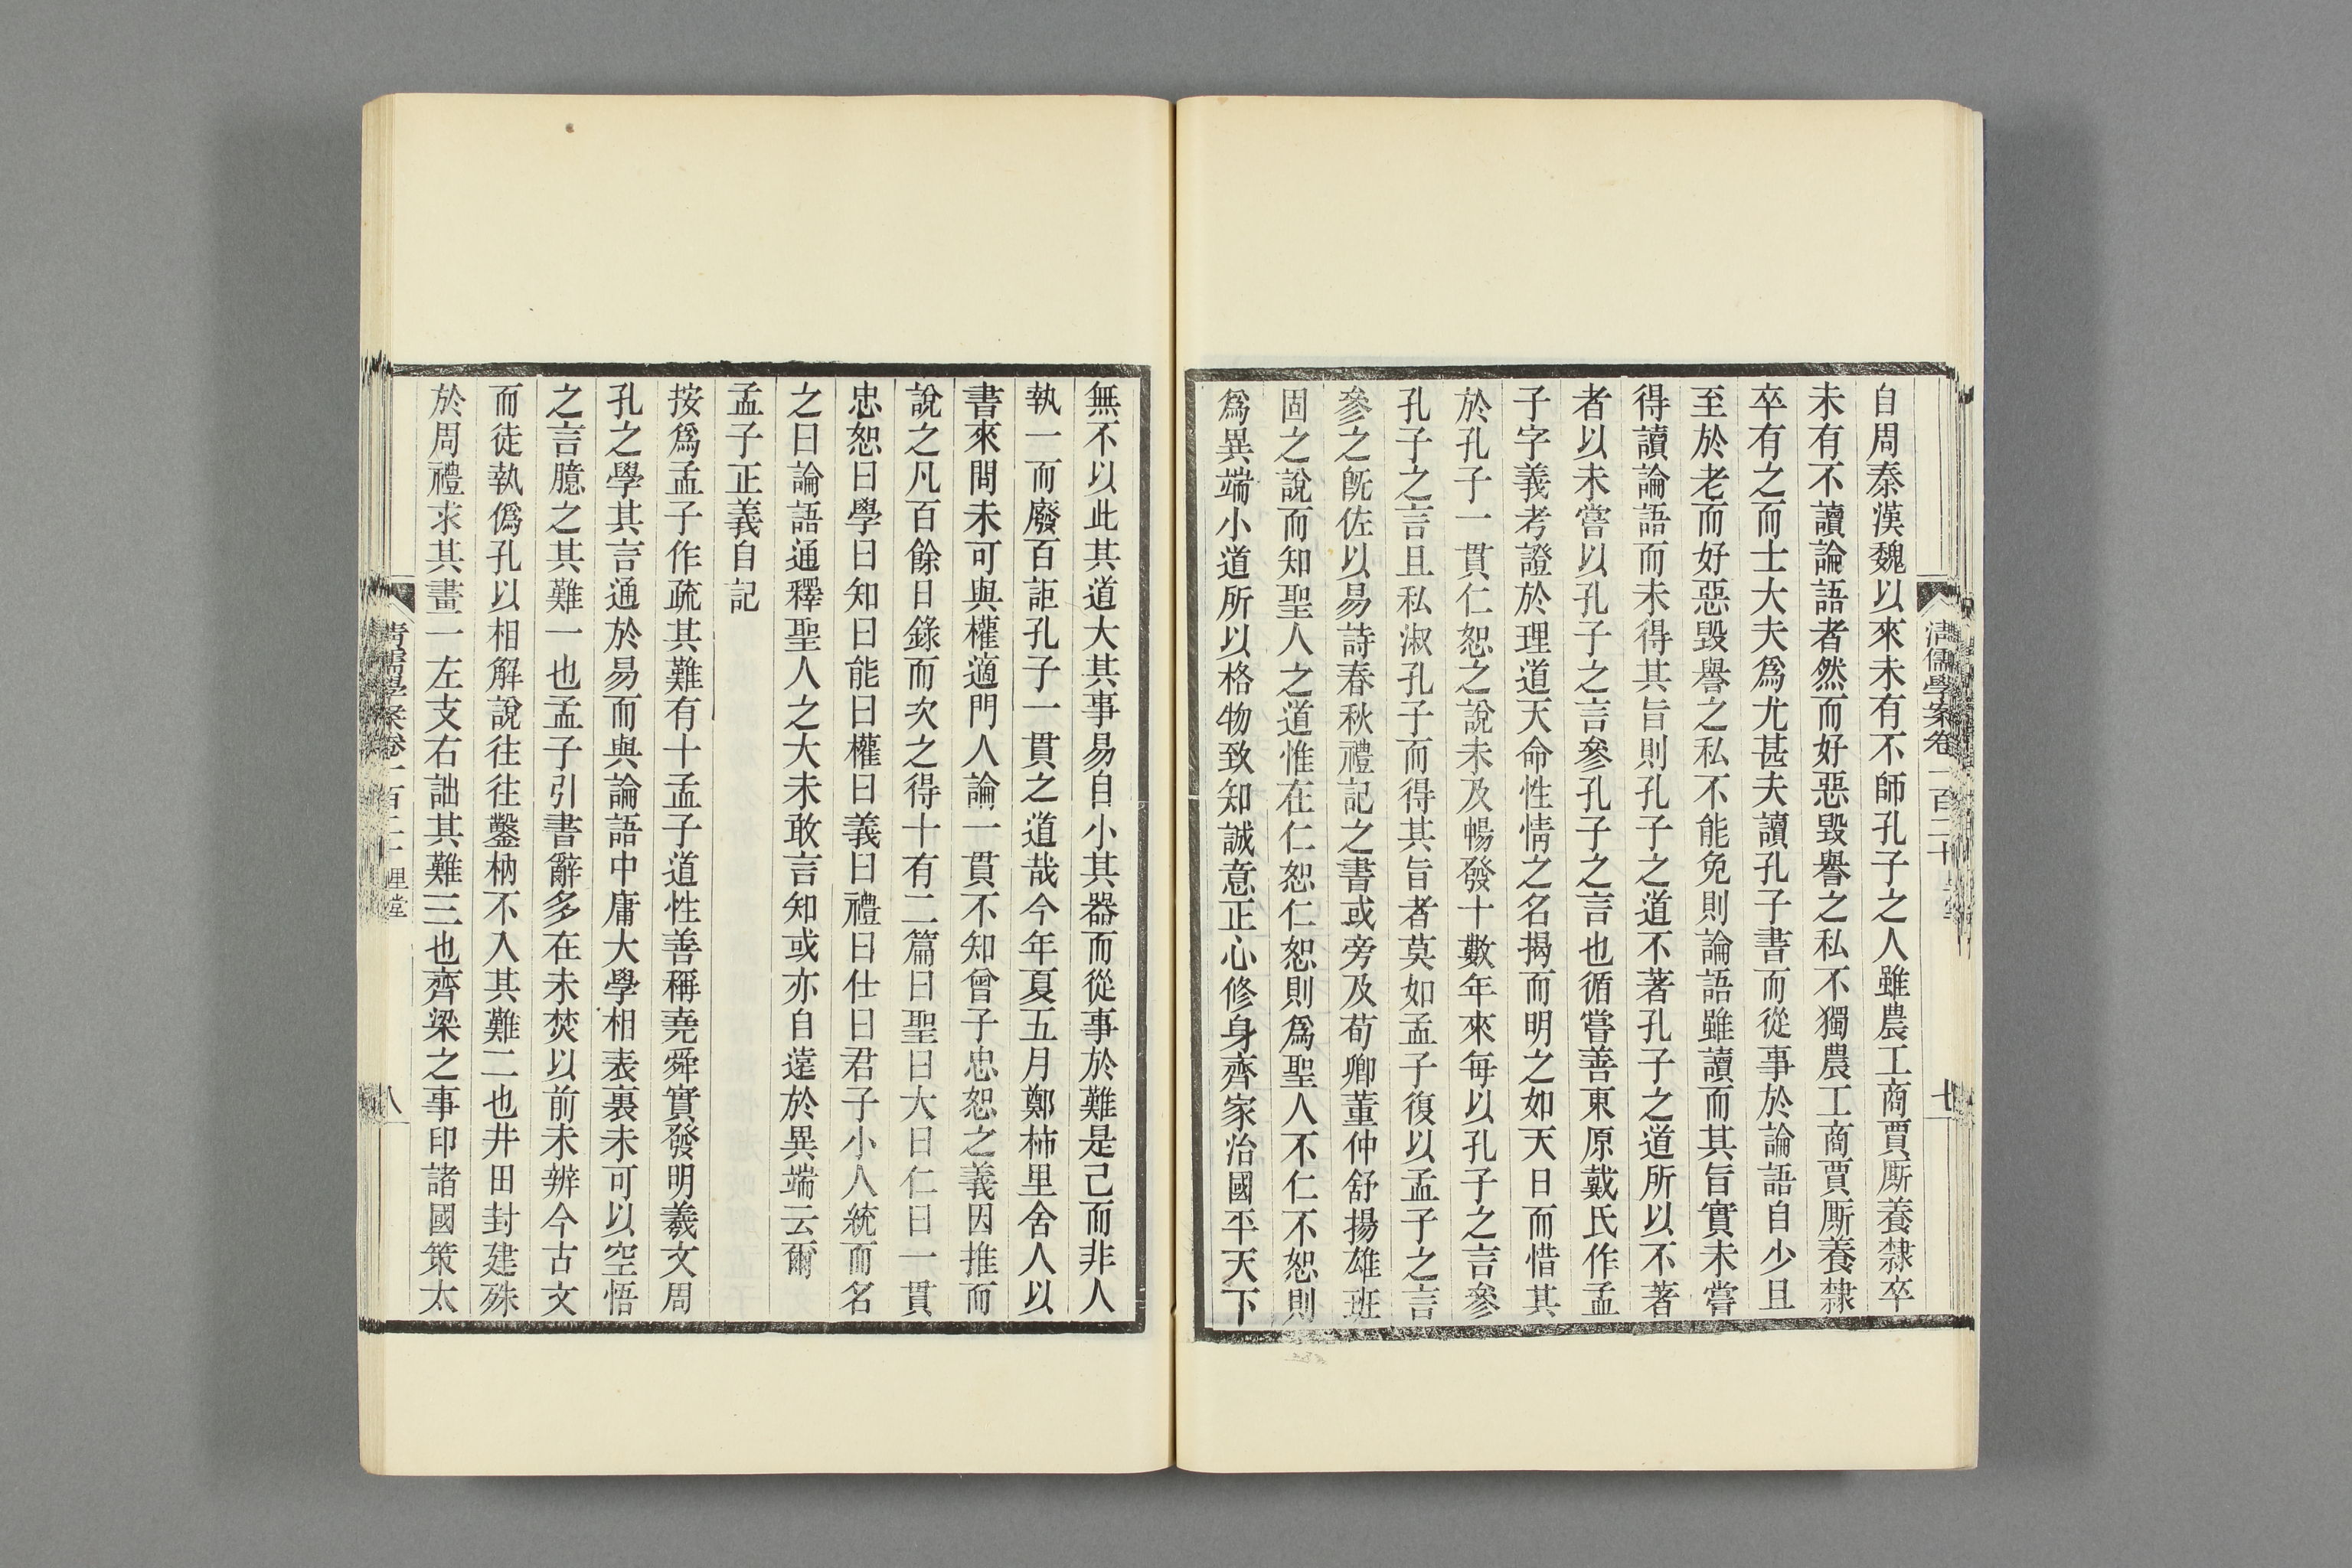 自周秦漢魏以來未有不師孔子之人雖農工商賈厮養隸卒
未有不讀論語者然而好惡毀譽之私不獨農工商賈厮養隸
卒有之而士大夫爲尤甚夫讀孔子書而從事於論語自少且
至於老而好惡毀譽之私不能免則論語雖讀而其旨實未嘗
得讀論語而未得其旨則孔子之道不著孔子之道所以不著
者以未嘗以孔子之言參孔子之言也循嘗善東原戴氏作孟
子字義考證於理道天命性情之名揭而明之如天日而惜其
於孔子一貫仁恕之說未及暢發十數年來每以孔子之言參
孔子之言且私淑孔子而得其旨者莫如孟子復以孟子之言
參之既佐以易詩春秋禮記之書或旁及荀卿董仲舒揚雄班
固之說而知聖人之道惟在仁恕仁恕則爲聖人不仁不恕則
爲異端小道所以格物致知誠意正心修身齊家治國平天下
清儒學案卷一百二十
七
無不以此其道大其事易自小其器而從事於難是己而非人
執一而廢百詎孔子一貫之道哉今年夏五月鄭柿里舍人以
書來問未可與權適門人論一貫不知曾子忠恕之義因推而
說之凡百餘日錄而次之得十有二篇曰聖曰大曰仁曰一貫
忠恕曰學曰知曰能曰權曰義曰禮曰仕曰君子小人統而名
之曰論語通釋聖人之大未敢言知或亦自遠於異端云爾
孟子正義自記
按爲孟子作疏其難有十孟子道性善稱堯舜實發明羲文周
孔之學其言通於易而與論語中庸大學相表裏未可以空悟
之言臆之其難一也孟子引書辭多在未焚以前未辨今古文
而徒執僞孔以相解說往往鑿枘不入其難二也井田封建殊
於周禮求其畫一左支右詘其難三也齊梁之事印諸國策太
清儒學案卷一百二十 里堂
八